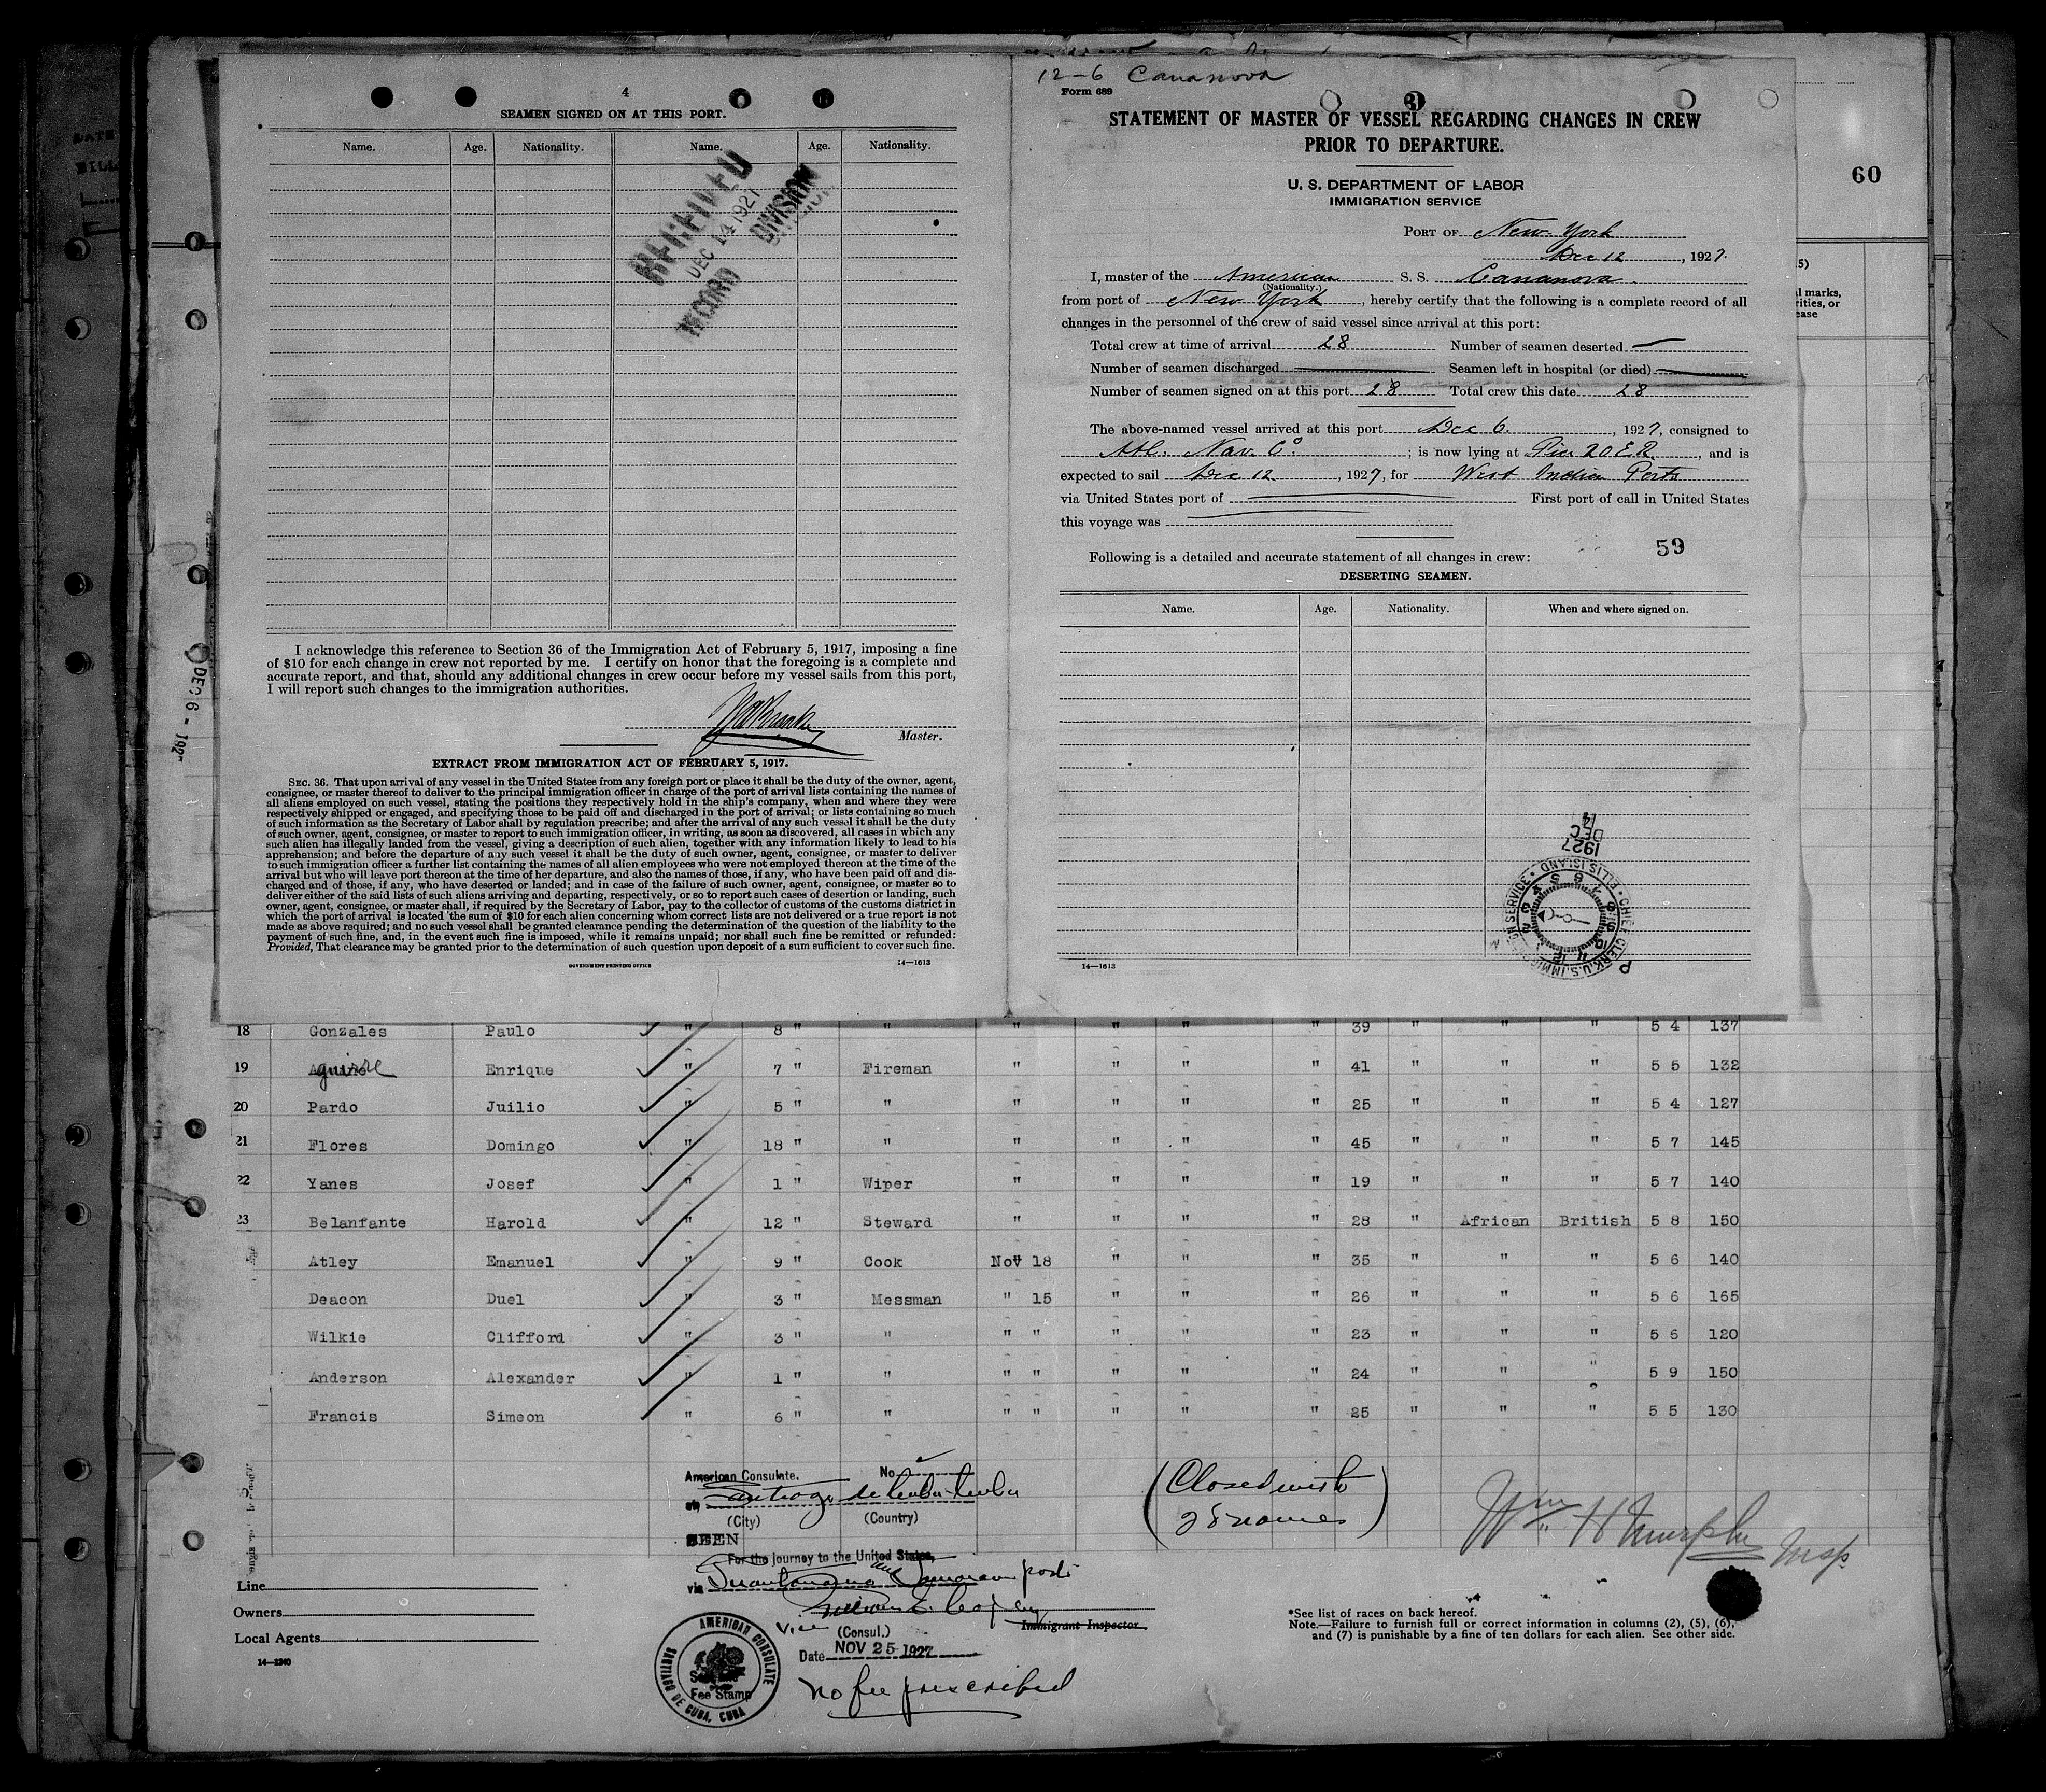 4
SEAMEN SIGNED ON AT THIS PORT.
Name. Age. Nationality. Name. Age. Nationality.
RECEIVED
DEC 14 1927
RECORD DIVISION
I acknowledge this reference to Section 36 of the Immigration Act of February 5, 1917, imposing a fine
of $10 for each change in crew not reported by me. I certify on honor that the foregoing is a complete and
accurate report, and that, should any additional changes in crew occur before my vessel sails from this port,
I will report such changes to the immigration authorities.
Master.
EXTRACT FROM IMMIGRATION ACT OF FEBRUARY 5, 1917.
SEC. 36. That upon arrival of any vessel in the United States from any foreign port or place it shall be the duty of the owner, agent,
consignee, or master thereof to deliver to the principal immigration officer in charge of the port of arrival lists containing the names of
all aliens employed on such vessel, stating the positions they respectively hold in the ship's company, when and where they were
respectively shipped or engaged, and specifying those to be paid off and discharged in the port of arrival; or lists containing so much
of such information as the Secretary of Labor shall by regulation prescribe; and after the arrival of any such vessel it shall be the duty
of such owner, agent, consignee, or master to report to such immigration officer, in writing, as soon as discovered, all cases in which any
such alien has illegally landed from the vessel, giving a description of such alien, together with any information likely to lead to his
apprehension; and before the departure of any such vessel it shall be the duty of such owner, agent, consignee, or master to deliver
to such immigration officer a further list containing the names of all alien employees who were not employed thereon at the time of the
arrival but who will leave port thereon at the time of her departure, and also the names of those, if any, who have been paid off and dis-
charged and of those, if any, who have deserted or landed; and in case of the failure of such owner, agent, consignee, or master so to
deliver either of the said lists of such aliens arriving and departing, respectively, or so to report such cases of desertion or landing, such
owner, agent, consignee, or master shall, if required by the Secretary of Labor, pay to the collector of customs of the customs district in
which the port of arrival is located the sum of $10 for each alien concerning whom correct lists are not delivered or a true report is not
made as above required; and no such vessel shall be granted clearance pending the determination of the question of the liability to the
payment of such fine, and, in the event such fine is imposed, while it remains unpaid; nor shall such fine be remitted or refunded:
Provided, That clearance may be granted prior to the determination of such question upon deposit of a sum sufficient to cover such fine.
GOVERNMENT PRINTING OFFICE 14—1613
12-6 Cananova
Form 689
3
STATEMENT OF MASTER OF VESSEL REGARDING CHANGES IN CREW
PRIOR TO DEPARTURE.
U. S. DEPARTMENT OF LABOR
IMMIGRATION SERVICE
PORT OF New York
Dec 12, 1927.
I, master of the American S. S. Cananova
(Nationality.)
from port of New York, hereby certify that the following is a complete record of all
changes in the personnel of the crew of said vessel since arrival at this port:
Total crew at time of arrival 28 Number of seamen deserted —
Number of seamen discharged — Seamen left in hospital (or died) —
Number of seamen signed on at this port 28 Total crew this date 28
The above-named vessel arrived at this port Dec 6, 1927, consigned to
Atl. Nav. Co; is now lying at Pier 20 E R, and is
expected to sail Dec 12, 1927, for West Indian Ports
via United States port of — First port of call in United States
this voyage was —
59
Following is a detailed and accurate statement of all changes in crew:
DESERTING SEAMEN.
Name. Age. Nationality. When and where signed on.
1927
DEC
14
CHIEF CLERK, U.S. IMMIGRATION SERVICE • ELLIS ISLAND •
P
14—1613
60
5)
l marks,
rities, or
ease
DEC 6 - 192
18 Gonzales Paulo " 8 " " " " " " 39 " " " 5 4 137
19 Aguirre Enrique " 7 " Fireman " " " " 41 " " " 5 5 132
20 Pardo Juilio " 5 " " " " " " 25 " " " 5 4 127
21 Flores Domingo " 18 " " " " " " 45 " " " 5 7 145
22 Yanes Josef " 1 " Wiper " " " " 19 " " " 5 7 140
23 Belanfante Harold " 12 " Steward " " " " 28 " African British 5 8 150
Atley Emanuel " 9 " Cook Nov 18 " " " 35 " " " 5 6 140
Deacon Duel " 3 " Messman " 15 " " " 26 " " " 5 6 165
Wilkie Clifford " 3 " " " " " " " 23 " " " 5 6 120
Anderson Alexander " 1 " " " " " " " 24 " " " 5 9 150
Francis Simeon " 6 " " " " " " " 25 " " " 5 5 130
American Consulate. No
at Santiago de Cuba Cuba
(City) (Country)
SEEN
For the journey to the United States,
via Guantanamo and Jamaican ports
Vice (Consul.) Immigrant Inspector.
Date NOV 25 1927
no fee prescribed
AMERICAN CONSULATE
SANTIAGO DE CUBA, CUBA
Fee Stamp
(Closed with
28 names)
Wm H Murphy Insp.
Line
Owners
Local Agents
14—1240
*See list of races on back hereof.
Note.—Failure to furnish full or correct information in columns (2), (5), (6),
and (7) is punishable by a fine of ten dollars for each alien. See other side.